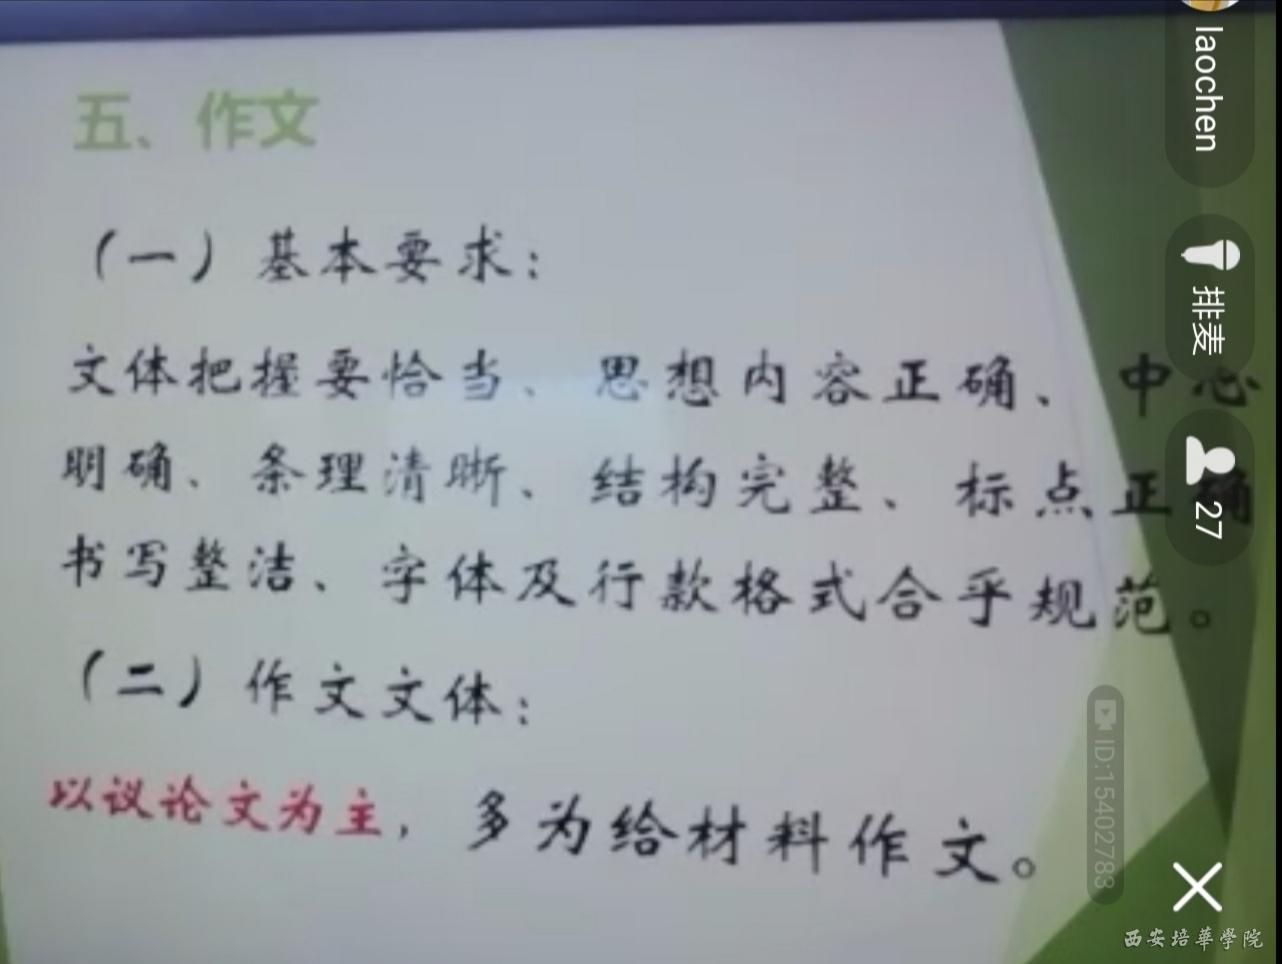 五、作文
（一）基本要求：
文体把握要恰当、思想内容正确、中心
明确、条理清晰、结构完整、标点正确
书写整洁、字体及行款格式合乎规范。
（二）作文文体：
以议论文为主，多为给材料作文。
laochen
排麦
27
ID:15402783
西安培華学院